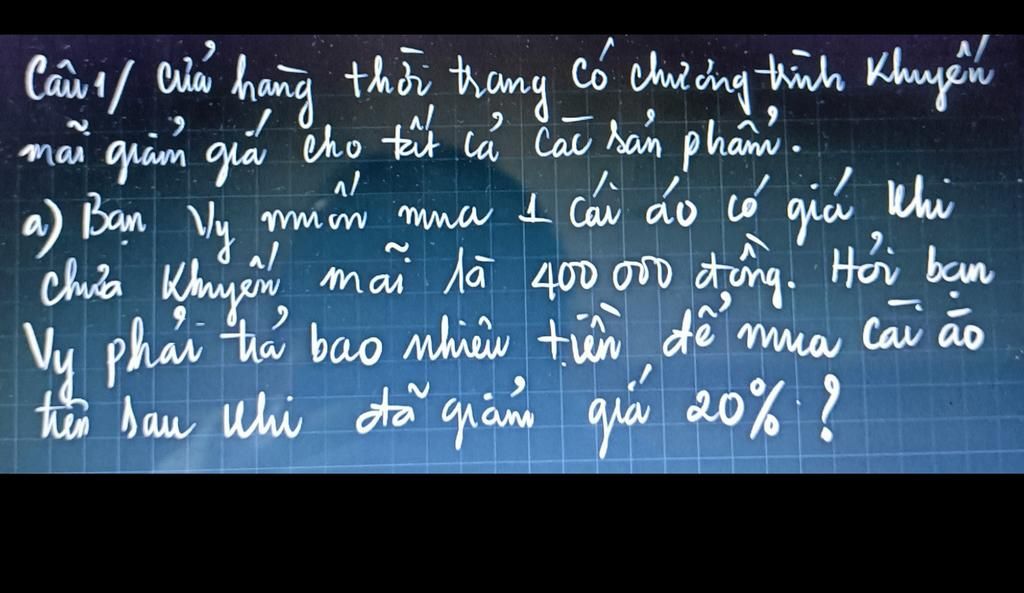 Câu 1/ Cửa hàng thời trang có chương trình khuyến
mãi giảm giá cho tất cả các sản phẩm.
a) Bạn Vy muốn mua 1 cái áo có giá khi
chưa khuyến mãi là 400 000 đồng. Hỏi bạn
Vy phải trả bao nhiêu tiền để mua cái áo
trên sau khi đã giảm giá 20% ?